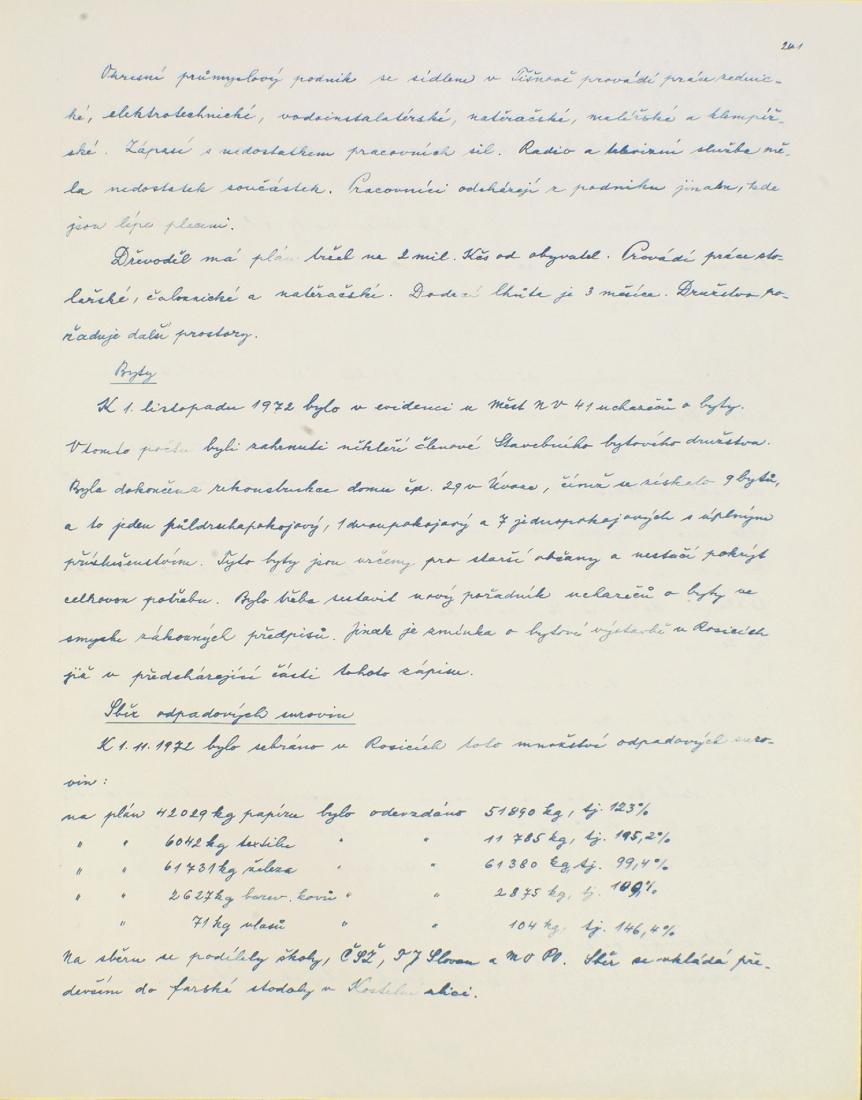 241
Okresní průmyslový podnik se sídlem v Tišnově provádí práce zednic-
ké, elektrotechnické, vodoinstalatérské, natěračské, malířské a klempíř-
ské. Zápasí s nedostatkem pracovních sil. Radio a televizní služba mě-
la nedostatek součástek. Pracovníci odcházejí z podniku jinam, kde
jsou lépe placeni.
Dřevoděl má plán tržeb na 2 mil. Kčs od obyvatel. Provádí práce sto-
lařské, čalounické a natěračské. Dodací lhůta je 3 měsíce. Družstvo po-
žaduje další prostory.
Byty
K 1. listopadu 1972 bylo v evidenci u Měst N V 41 uchazečů o byty.
V tomto počtu byli zahrnuti někteří členové Stavebního bytového družstva.
Byla dokončena rekonstrukce domu čp. 29 v Úvoze, čímž se získalo 9 bytů,
a to jeden půldruhapokojový, 1 dvoupokojový a 7 jednopokojových s úplným
příslušenstvím. Tyto byty jsou určeny pro starší občany a nestačí pokrýt
celkovou potřebu. Bylo třeba sestavit nový pořadník uchazečů o byty ve
smyslu zákonných předpisů. Jinak je zmínka o bytové výstavbě v Rosicích
již v předcházející části tohoto zápisu.
Sběr odpadových surovin
K 1. 11. 1972 bylo sebráno v Rosicích toto množství odpadových suro-
vin:
na plán 42029 kg papíru bylo odevzdáno 51890 kg, tj. 123%
" " 6042 kg textilu " " 11 785 kg, tj. 195,2%
" " 61731 kg železa " " 61380 kg, tj. 99,4%
" " 2627 kg barev. kovů " " 2875 kg, tj. %
" 71 kg vlasů " " 104 kg, tj. 146,4%
Na sběru se podílely školy, ČSŽ, T J Slovan a M O PO. Sběr se vkládá pře-
devším do farské stodoly v Kostelní ulici.